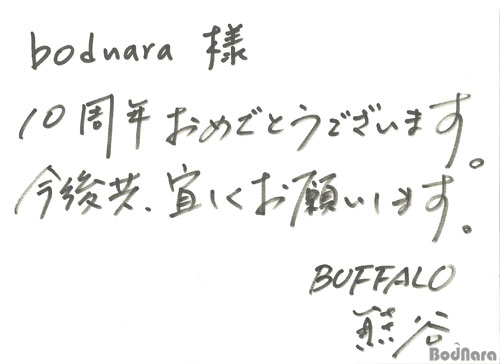 bodnara 様
10周年おめでとうございます。
今後共、宜しくお願いします。
BUFFALO
熊谷
BodNara